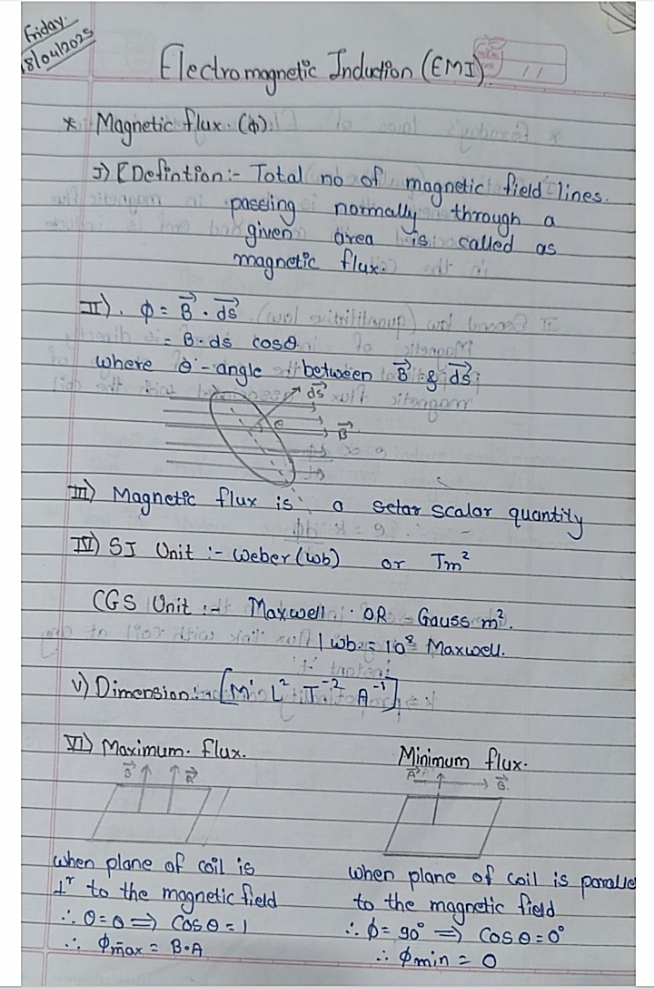 Friday.
18/04/2025
Electromagnetic Induction (EMI)
* Magnetic flux. (ϕ).
I) [Defintion:- Total no of magnetic field lines.
passing normally through a
given area is called as
magnetic flux.
II). ϕ = B⃗ . ds⃗
= B. ds cosθ.
where θ - angle between B⃗ & ds⃗
ds⃗
θ
B⃗
III) Magnetic flux is a scalar quantity
IV) SI Unit :- weber (wb) or Tm²
CGS Unit :- Maxwell. OR Gauss m².
1 wb. = 10⁸ Maxwell.
V) Dimension:- [M¹ L² T⁻² A⁻¹]
VI) Maximum. flux. Minimum flux.
B⃗ A⃗ A⃗ B⃗.
when plane of coil is
⊥ʳ to the magnetic field
∴ θ = 0 ⟹ Cos θ = 1
∴ ϕmax = B.A
when plane of coil is paralle
to the magnetic field
∴ ϕ = 90° ⟹ Cos θ = 0°
∴ ϕmin = 0